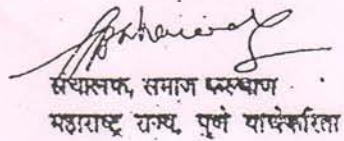 संचालक, समाज कल्याण
महाराष्ट्र राज्य, पुणे यांचेकरिता